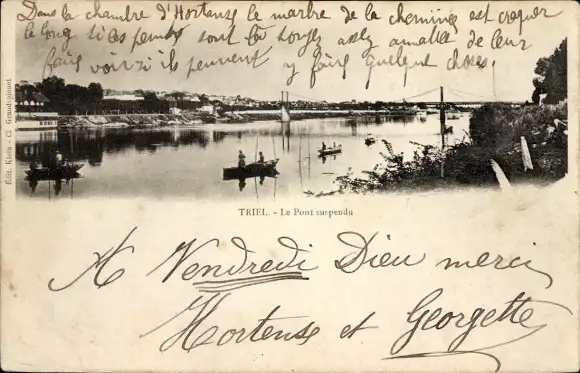 Dans la chambre d'Hortense le marbre de la cheminée est craquer
le long si les pendus sont là soyez assez aimable de leur
faire voir si ils peuvent y faire quelque chose.
Edit. Klein - Cl. Grandopinot
TRIEL. - Le Pont suspendu
A Vendredi Dieu merci
Hortense et Georgette